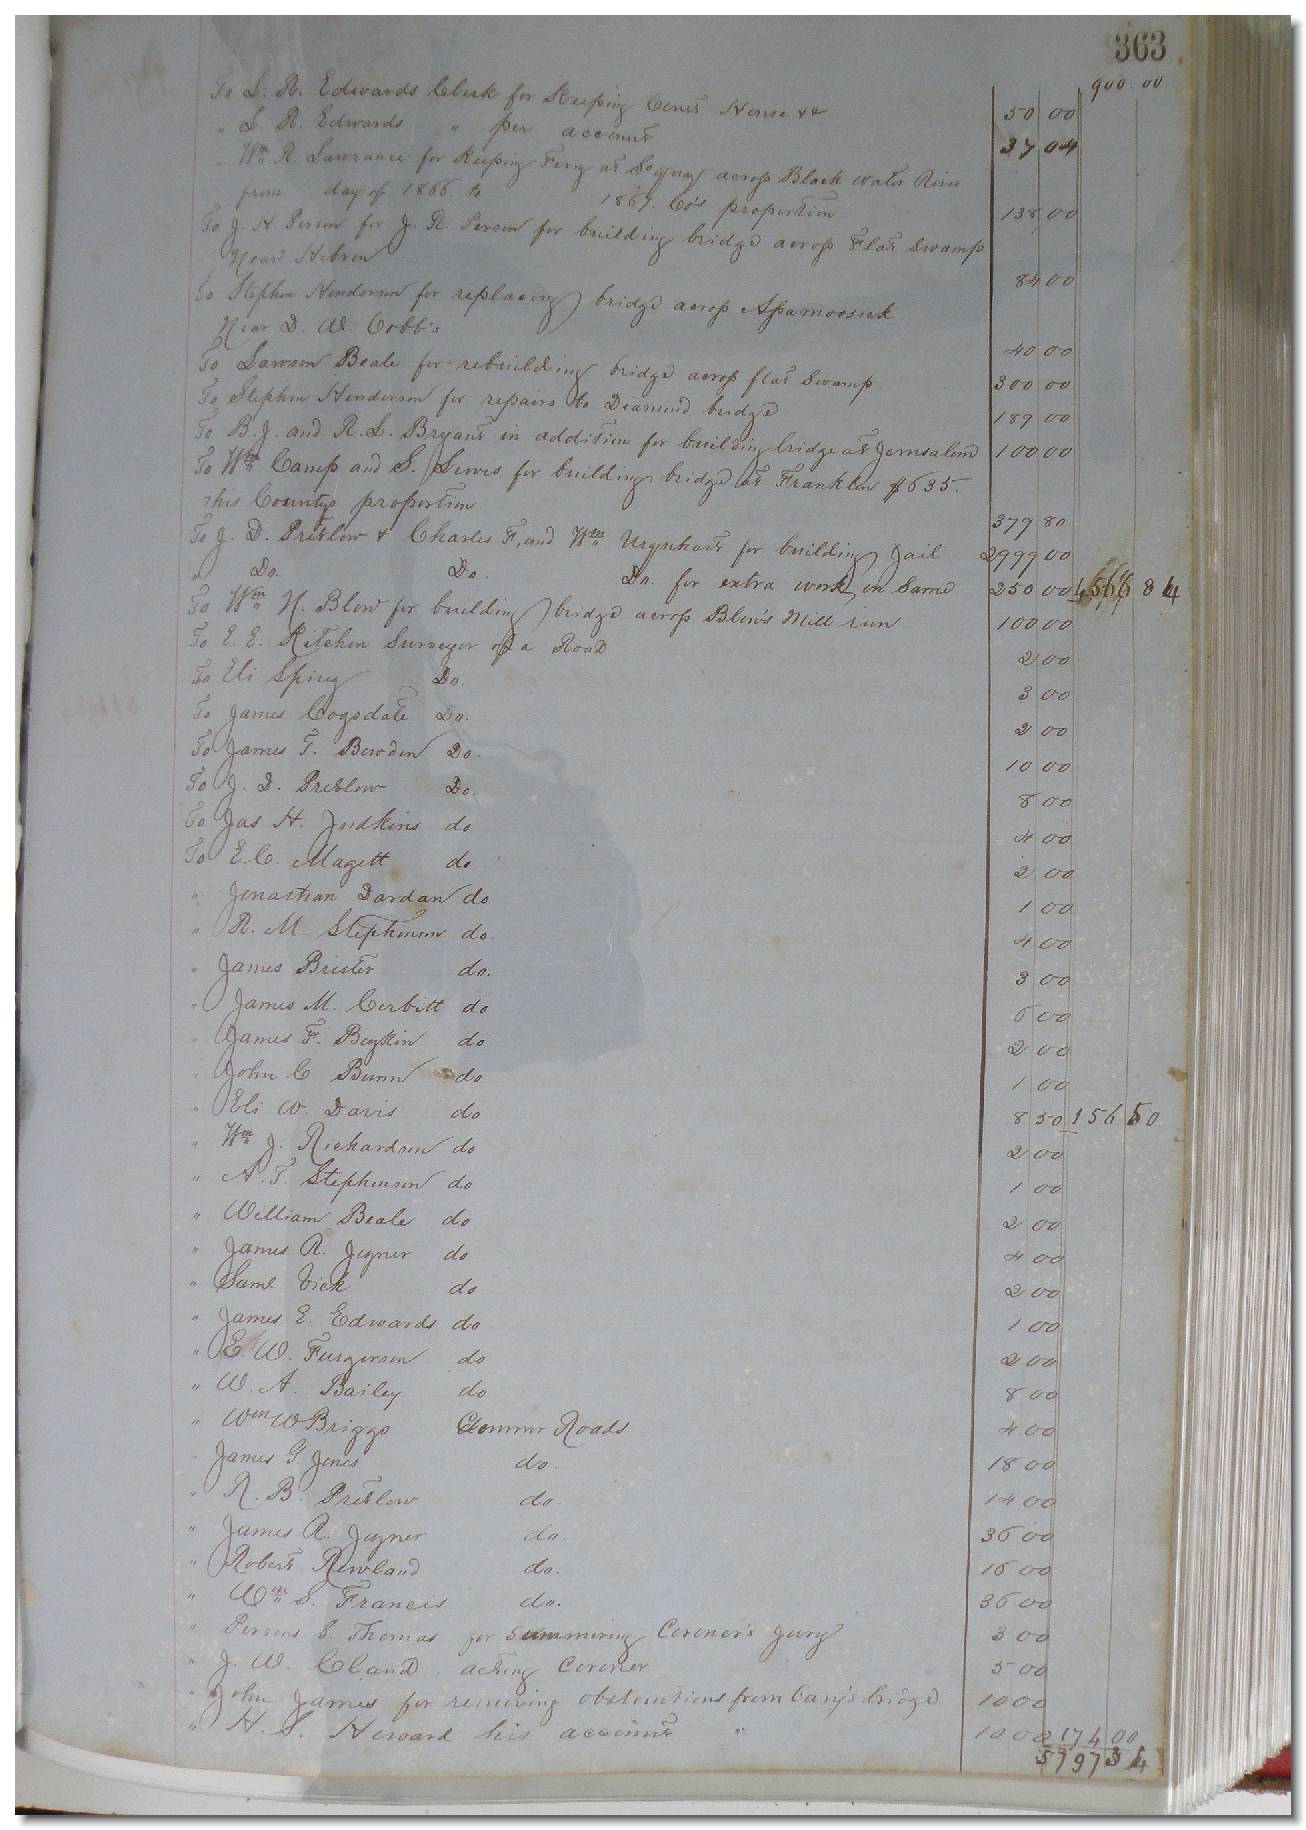 363
900.00
To L. R. Edwards Clerk for Keeping Court House &c 50 00
" L R. Edwards " per account 37 04
" Wm R. Lawrance for Keeping Ferry at across Black water River
from day of 1866 to 1867. Co's proportion 138 00
To J. H. Person for J. R. Person for building bridge across Flat Swamp
Near Hebron 84 00
To Stephen Henderson for replacing bridge across Assamoosick
Near D. W. Cobb's 40 00
To Lawson Beale for rebuilding bridge across flat Swamp 300 00
To Stephen Henderson for repairs to Diamond bridge 189 00
To B. J. and R. L. Bryant in addition for building bridge at Jerusalem 100 00
To Wm Camp and S. Lewis for building bridge at Franklin $635.
This Countys proportion 379 80
To J. D. Pretlow & Charles F. and Wm Urquhart for building Jail 2999 00
" Do. Do. Do. for extra work on Same 250 00 4566 84
To Wm N. Blow for building bridge across Blow's Mill run 100 00
To E. E. Kitchen Surveyor of a Road 2 00
To Eli Spivey Do. 3 00
To James Cogsdale Do. 2 00
To James T. Bowden Do. 10 00
To J. D. Pretlow Do. 8 00
To Jas H. Judkins do 4 00
To E. C. Magett do 2 00
" Jonathan Dardan do 1 00
" R. M. Stephenson do. 4 00
" James Brister do. 3 00
" James M. Corbitt do 6 00
" James F. Boykin do 2 00
" John C. Bunn do 1 00
" Eli W. Davis do 8 50 156 50
" Wm J. Richardson do 2 00
" A. T. Stephenson do 1 00
" William Beale do 2 00
" James R. Joyner do 4 00
" Saml Vick do 2 00
" James E. Edwards do 1 00
" E. W. Furgerson do 2 00
" W. A. Bailey do 8 00
" Wm W Briggs Commr Roads 4 00
" James G. Jones do. 18 00
" R. B. Pretlow do. 14 00
" James R. Joyner do. 36 00
" Robert Rowland do. 16 00
" Wm S. Francis do. 36 00
" Persons S. Thomas for Summoning Coroner's Jury 3 00
" J. W. Cland acting Coroner 5 00
" John James for removing obstructions from Cary's bridge 10 00
" H. S. Howard his account " 10 00 174 00
5797 34